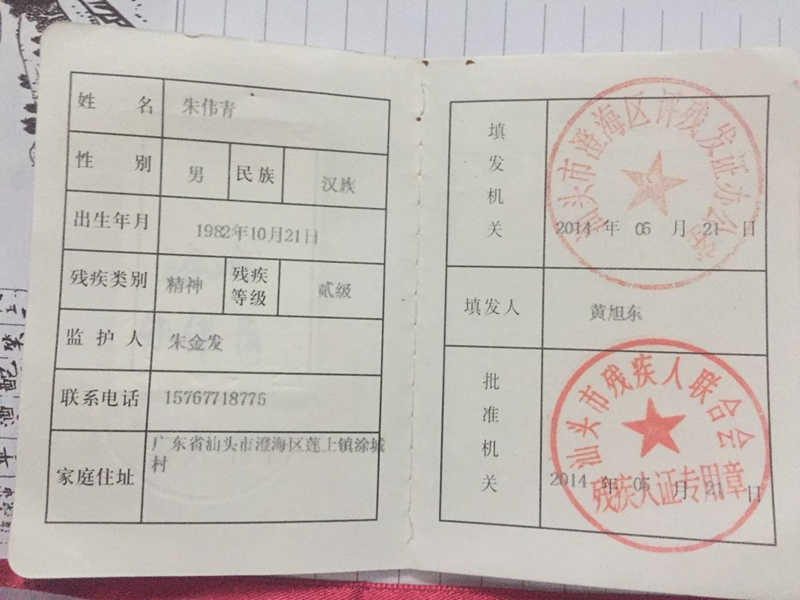 姓 名 朱伟青
性 别 男 民族 汉族
出生年月 1982年10月21日
残疾类别 精神 残疾等级 贰级
监护人 朱金发
联系电话 15767718775
家庭住址 广东省汕头市澄海区莲上镇涂城
村
填发机关 汕头市澄海区评残发证办公室
2014 年 05 月 21 日
填发人 黄旭东
批准机关 汕头市残疾人联合会
2014 年 05 月 21 日
残疾人证专用章